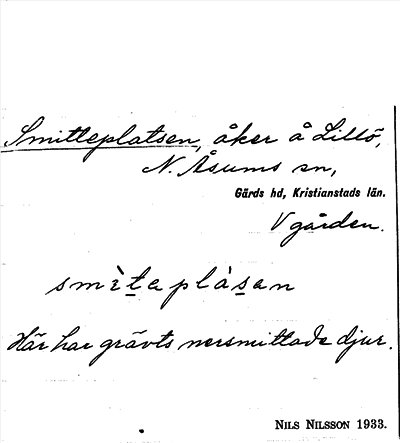 Smitteplatsen, åker å Lillö,
N. Åsums sn,
Gärds hd, Kristianstads län.
V gården.
smìt̲aplàs̲an
Här har grävts nersmittade djur.
NILS NILSSON 1933.